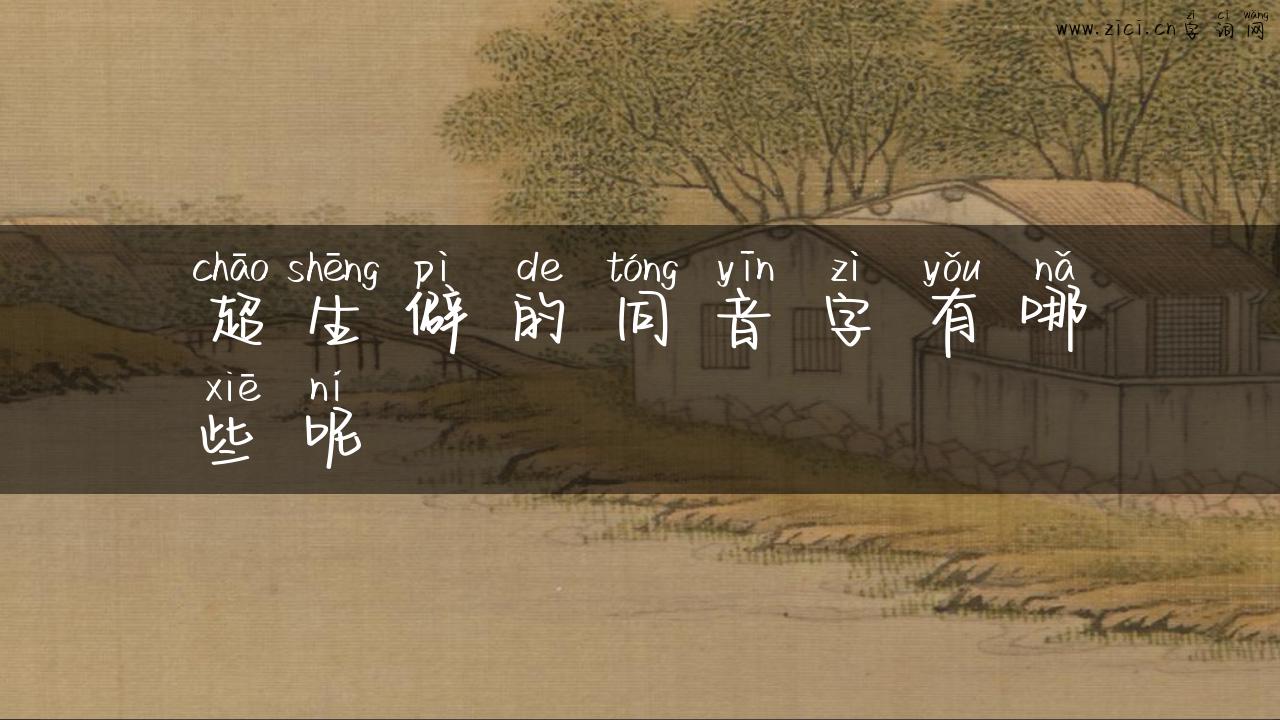 www.zici.cn字词网
zì cí wǎng
chāo shēng pì de tóng yīn zì yǒu nǎ
超生僻的同音字有哪
xiē ní
些呢